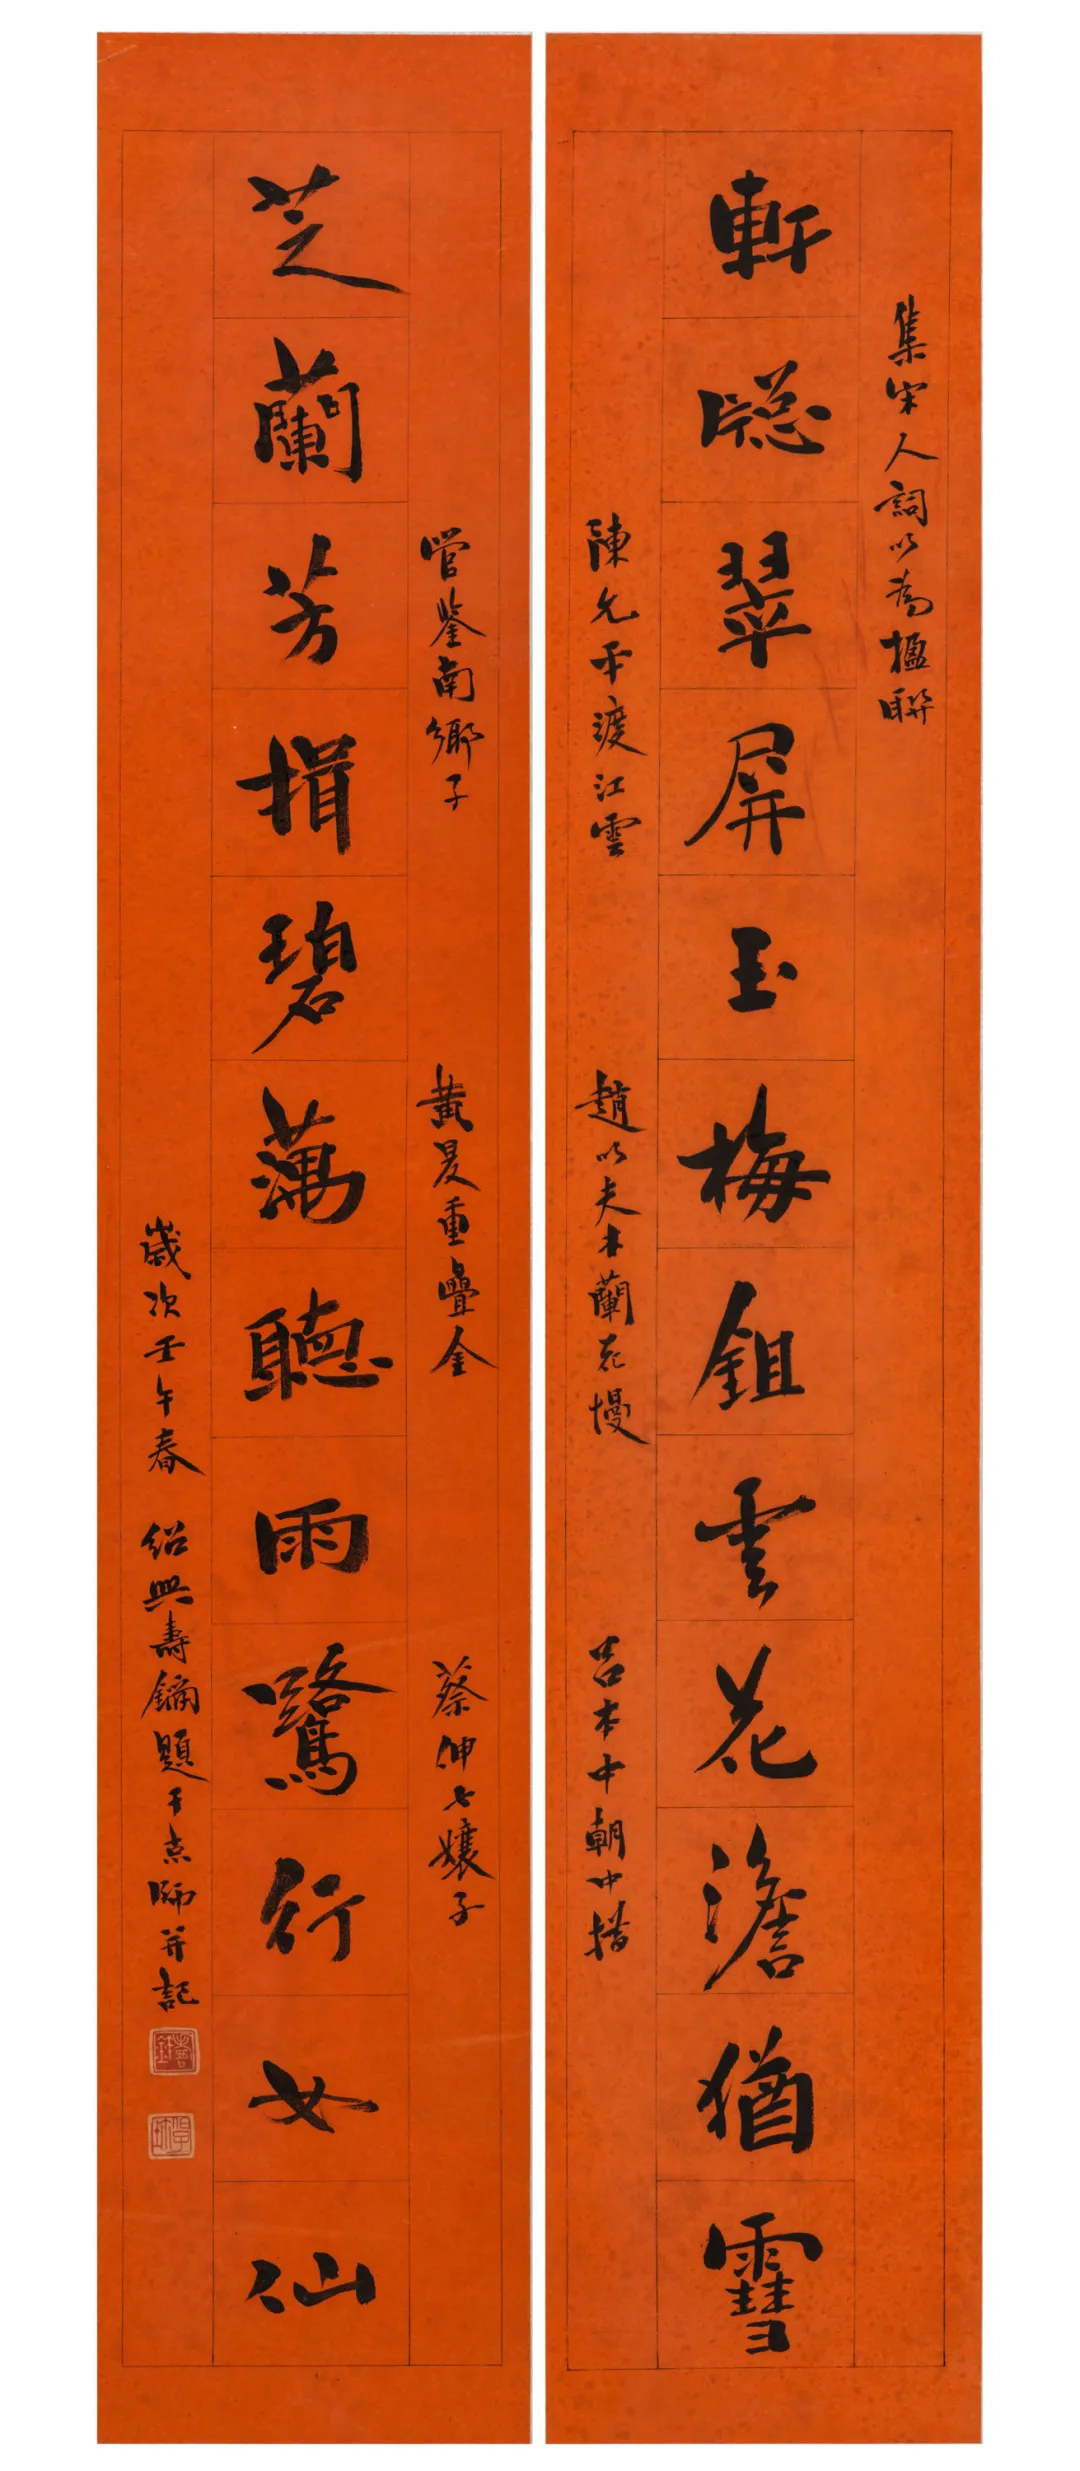 集宋人詞以為楹聯
軒牕翠屏玉梅鉏雲花澹猶雪
陳允平渡江雲
趙以夫木蘭花慢
呂本中朝中措
管鑒南鄉子
黃昇重疊金
蔡伸七孃子
芝蘭芳揖碧蕅聽雨鷺行女仙
歲次壬午春 紹興壽鑈題于京師并記